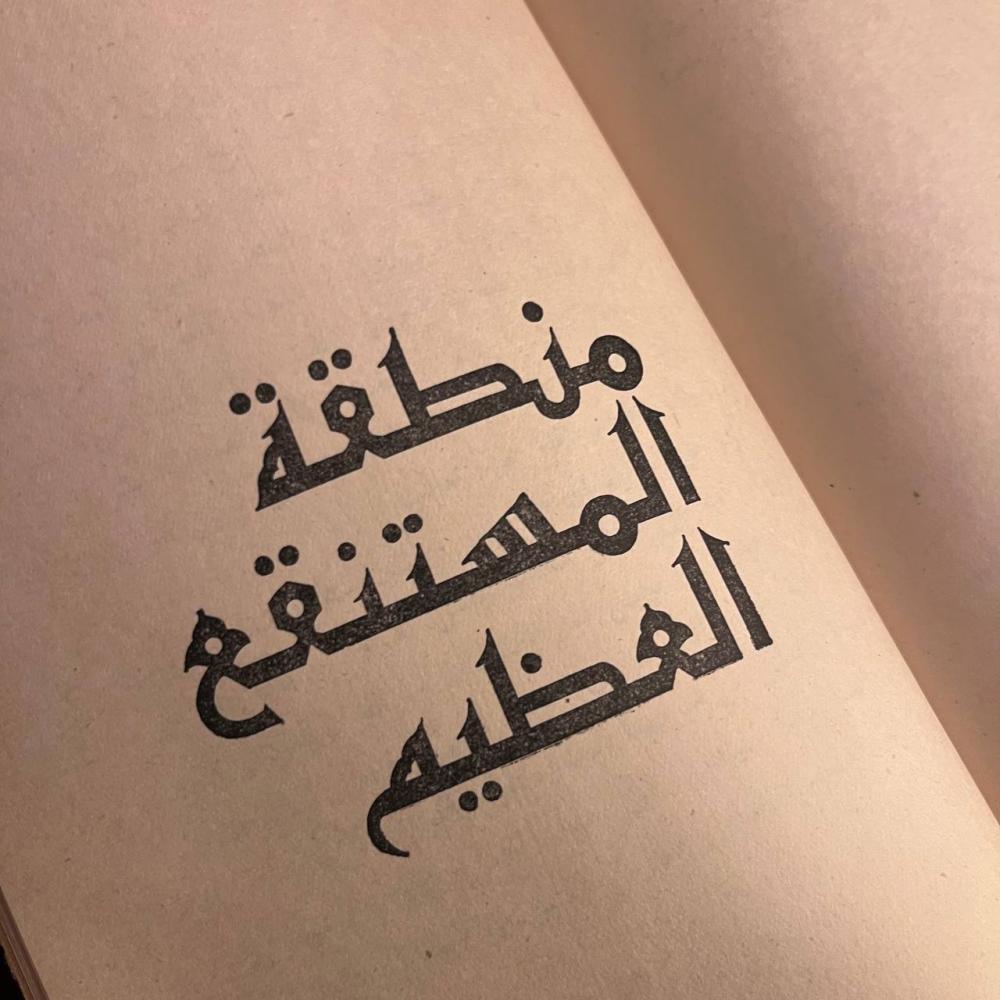 منطقة
المستنقع
العظيم